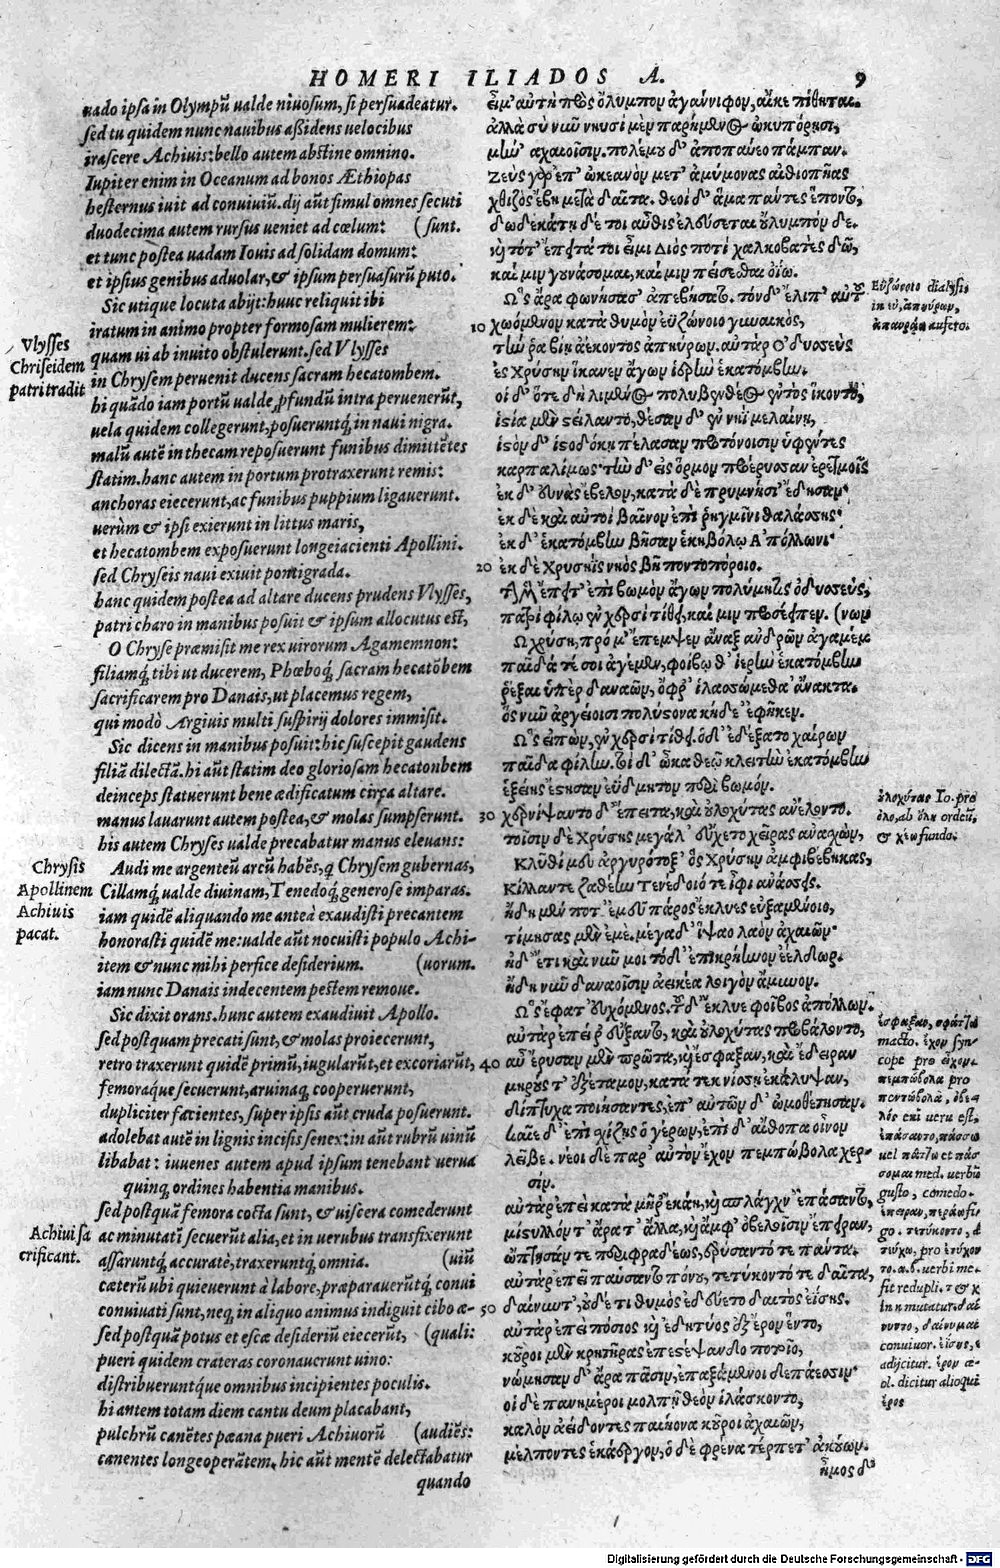 HOMERI ILIADOS A. 9
uado ipsa in Olympũ ualde niuosum, si persuadeatur.
sed tu quidem nunc nauibus aßidens uelocibus
irascere Achiuis: bello autem abstine omnino.
Iupiter enim in Oceanum ad bonos Æthiopas
hesternus iuit ad conuiuiũ. dij aũt simul omnes secuti
duodecima autem rursus ueniet ad cœlum: (sunt.
et tunc postea uadam Iouis ad solidam domum:
et ipsius genibus aduolar, & ipsum persuasurũ puto.
Sic utique locuta abijt: hunc reliquit ibi
iratum in animo propter formosam mulierem:
quam ui ab inuito obstulerunt. sed Vlysses
in Chrysem peruenit ducens sacram hecatombem.
hi quãdo iam portũ ualde ꝓfundũ intra peruenerũt,
uela quidem collegerunt, posueruntq; in naui nigra.
malũ autẽ in thecam reposuerunt funibus dimittẽtes
statim. hanc autem in portum protraxerunt remis:
anchoras eiecerunt, ac funibus puppium ligauerunt.
uerùm & ipsi exierunt in littus maris,
et hecatombem exposuerunt longeiacienti Apollini.
sed Chryseis naui exiuit pontigrada.
hanc quidem postea ad altare ducens prudens Vlysses,
patri charo in manibus posuit & ipsum allocutus est,
O Chryse præmisit me rex uirorum Agamemnon:
filiamq́; tibi ut ducerem, Phœboq́; sacram hecatõbem
sacrificarem pro Danais, ut placemus regem,
qui modò Argiuis multi suspirij dolores immisit.
Sic dicens in manibus posuit: hic suscepit gaudens
filiã dilectã. hi aũt statim deo gloriosam hecatonbem
deinceps statuerunt bene ædificatum circa altare.
manus lauarunt autem postea, & molas sumpserunt.
his autem Chryses ualde precabatur manus eleuans:
Audi me argenteũ arcũ habẽs, q Chrysem gubernas,
Cillamq́; ualde diuinam, Tenedoq́; generose imparas.
iam quidẽ aliquando me anteà exaudisti precantem
honorasti quidẽ me: ualde aũt nocuisti populo Achi-
item & nunc mihi perfice desiderium. (uorum.
iam nunc Danais indecentem pestem remoue.
Sic dixit orans. hunc autem exaudiuit Apollo.
sed postquam precati sunt, & molas proiecerunt,
retro traxerunt quidẽ primũ, iugularũt, et excoriarũt,
femoraq́ue secuerunt, aruinaq; cooperuerunt,
dupliciter facientes, super ipsis aũt cruda posuerunt.
adolebat autẽ in lignis incisis senex: in aũt rubrũ uinũ
libabat: iuuenes autem apud ipsum tenebant uerua
quinq; ordines habentia manibus.
sed postquã femora cocta sunt, & uiscera comederunt
ac minutatĩ secuerũt alia, et in uerubus transfixerunt
assaruntq; accuratè, traxeruntq; omnia. (uiũ
cæterũ ubi quieuerunt à labore, præparauerũtq; conui
conuiuati sunt, neq; in aliquo animus indiguit cibo æ-
sed postquã potus et escæ desideriũ eiecerũt, (quali:
pueri quidem crateras coronauerunt uino:
distribueruntq́ue omnibus incipientes poculis.
hi autem totam diem cantu deum placabant,
pulchrũ canẽtes pæana pueri Achiuorũ (audiẽs:
canentes longeoperãtem. hic aũt mentẽ delectabatur
quando
Vlysses
Chriseidem
patri tradit
Chrysis
Apollinem
Achiuis
pacat.
Achiui sa
crificant.
εἶμ' αὐτὴ πρὸς ὄλυμπον ἀγάννιφον, αἴκε πίθηται.
ἀλλὰ σὺ νῦν νηυσὶ μὲν παρήμενος ὠκυπόροισι,
μήνι' ἀχαιοῖσιν. πολέμου δ' ἀποπαύεο πάμπαν.
Ζεὺς γὰρ ἐπ' ὠκεανὸν μετ' ἀμύμονας αἰθιοπῆας
χθιζὸς ἔβη μετὰ δαῖτα. θεοὶ δ' ἅμα πάντες ἕποντο,
δωδεκάτῃ δέ τοι αὖθις ἐλεύσεται οὔλυμπόν δε.
καὶ τότ' ἔπειτά τοι εἶμι Διὸς ποτὶ χαλκοβατὲς δῶ,
καί μιν γουνάσομαι, καί μιν πείσεσθαι ὀΐω.
Ὣς ἄρα φωνήσασ' ἀπεβήσατο. τὸν δ' ἔλιπ' αὐτοῦ
10 χωόμενον κατὰ θυμὸν ἐϋζώνοιο γυναικὸς,
τήν ῥα βίῃ ἀέκοντος ἀπηύρων. αὐτὰρ ὀδυσσεὺς
ἐς Χρύσην ἵκανεν ἄγων ἱερὴν ἑκατόμβην.
οἱ δ' ὅτε δὴ λιμένος πολυβενθέος ἐντὸς ἵκοντο,
ἱστία μὲν στείλαντο, θέσαν δ' ἐν νηῒ μελαίνῃ,
ἱστὸν δ' ἱστοδόκῃ πέλασαν προτόνοισιν ὑφέντες
καρπαλίμως· τὴν δ' εἰς ὅρμον προέρυσσαν ἐρετμοῖς
ἐκ δ' εὐνὰς ἔβαλον, κατὰ δὲ πρυμνήσι' ἔδησαν·
ἐκ δὲ καὶ αὐτοὶ βαῖνον ἐπὶ ῥηγμῖνι θαλάσσης·
ἐκ δ' ἑκατόμβην βῆσαν ἑκηβόλῳ Ἀπόλλωνι·
20 ἐκ δὲ Χρυσηῒς νηὸς βῆ ποντοπόροιο.
τὴν μὲν ἔπειτ' ἐπὶ βωμὸν ἄγων πολύμητις ὀδυσσεὺς,
πατρὶ φίλῳ ἐν χερσὶ τίθει, καί μιν προσέειπεν. (νων
Ὦ χρύση, πρό μ' ἔπεμψεν ἄναξ ἀνδρῶν ἀγαμέμ
παῖδά τέ σοι ἀγέμεν, φοίβῳ θ' ἱερὴν ἑκατόμβην
ῥέξαι ὑπὲρ δαναῶν, ὄφρ' ἱλασώμεθ' ἄνακτα.
ὃς νῦν ἀργείοισι πολύστονα κήδε' ἐφῆκεν.
Ὣς εἰπὼν, ἐν χερσὶ τίθει. ὁ δ' ἐδέξατο χαίρων
παῖδα φίλην. τοὶ δ' ὦκα θεῷ κλειτὴν ἑκατόμβην
ἑξείης ἔστησαν ἐΰδμητον περὶ βωμόν.
30 χερνίψαντο δ' ἔπειτα, καὶ οὐλοχύτας ἀνέλοντο.
τοῖσιν δὲ Χρύσης μεγάλ' εὔχετο χεῖρας ἀνασχών,
Κλῦθί μευ ἀργυρότοξ' ὃς Χρύσην ἀμφιβέβηκας,
Κίλλαν τε ζαθέην Τενέδοιό τε ἶφι ἀνάσσεις.
ἤδη μέν ποτ' ἐμεῦ πάρος ἔκλυες εὐξαμένοιο,
τίμησας μὲν ἐμέ, μέγα δ' ἴψαο λαὸν ἀχαιῶν·
ἠδ' ἔτι καὶ νῦν μοι τόδ' ἐπικρήηνον ἐέλδωρ.
ἤδη νῦν δαναοῖσιν ἀεικέα λοιγὸν ἄμυνον.
Ὣς ἔφατ' εὐχόμενος. τοῦ δ' ἔκλυε φοῖβος ἀπόλλων.
αὐτὰρ ἐπεί ῥ' εὔξαντο, καὶ οὐλοχύτας προβάλοντο,
40 αὖ ἔρυσαν μὲν πρῶτα, καὶ ἔσφαξαν, καὶ ἔδειραν
μηρούς τ' ἐξέταμον, κατά τε κνίσσῃ ἐκάλυψαν,
δίπτυχα ποιήσαντες, ἐπ' αὐτῶν δ' ὠμοθέτησαν.
καῖε δ' ἐπὶ σχίζῃς ὁ γέρων, ἐπὶ δ' αἴθοπα οἶνον
λεῖβε. νέοι δὲ παρ' αὐτὸν ἔχον πεμπώβολα χερ-
σίν.
αὐτὰρ ἐπεὶ κατὰ μῆρ' ἐκάη, καὶ σπλάγχν' ἐπάσαντο,
μίστυλλόν τ' ἄρα τ' ἄλλα, καὶ ἀμφ' ὀβελοῖσιν ἔπειραν,
ὤπτησάν τε περιφραδέως, ἐρύσαντό τε πάντα.
αὐτὰρ ἐπεὶ παύσαντο πόνου, τετύκοντό τε δαῖτα,
50 δαίνυντ', οὐδέ τι θυμὸς ἐδεύετο δαιτὸς ἐΐσης.
αὐτὰρ ἐπεὶ πόσιος καὶ ἐδητύος ἐξ ἔρον ἕντο,
κοῦροι μὲν κρητῆρας ἐπεστέψαντο ποτοῖο,
νώμησαν δ' ἄρα πᾶσιν, ἐπαρξάμενοι δεπάεσσιν·
οἱ δὲ πανημέριοι μολπῇ θεὸν ἱλάσκοντο,
καλὸν ἀείδοντες παιήονα κοῦροι ἀχαιῶν,
μέλποντες ἑκάεργον, ὁ δὲ φρένα τέρπετ' ἀκούων.
ἦμος δ'
Εὐζώνοιο dialysis
in εὐ, ἀπούρων,
ἀπαυρῶ aufero.
οὐλοχύτας Io. pro
ὀλο, ab ὅλη ordeũ,
& χέω fundo.
ἔσφαξαν, σφάττω
macto. ἔχον syn-
cope pro εἶχον.
πεμπώβολα pro
πεντώβολα, ὀβε-
λός enĩ ueru est,
ἐπάσαντο, πάσσω
uel πάτζω et πάσ
σομαι med. uerbũ
gusto, comedo.
ἔπειραν, περάω fin
go. τετύκοντο, à
τεύχω, pro ἐτύχον
το. a. 2. uerbi me.
fit redupli. τ & χ
in κ mutatur. δαί
νυντο, δαίνυμαι
conuiuor. ἐΐσης, ε
adijcitur. ἔρον æ-
ol. dicitur alioqui
ἔρος
Digitalisierung gefördert durch die Deutsche Forschungsgemeinschaft - DFG